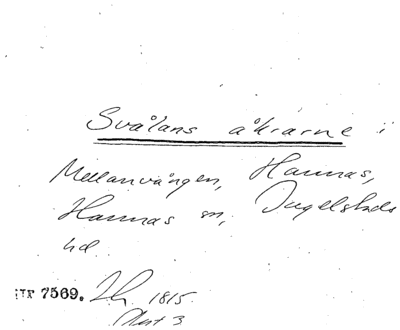 Svålans åkrarne i
Mellanvången, Hannas,
Hannas sn, Ingelstads
hd
7569. 1815